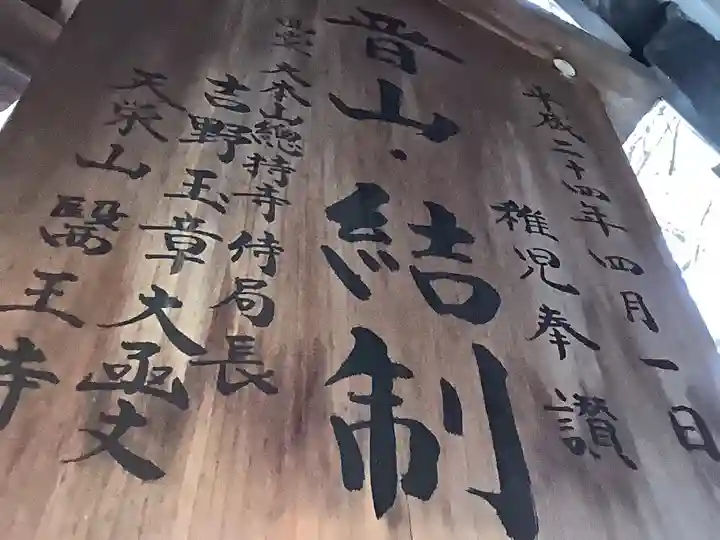 平成二十四年四月一日
稚児奉讃
晋山・結制
大本山總持寺侍局長
吉野玉章大凾丈
天栄山醫王寺